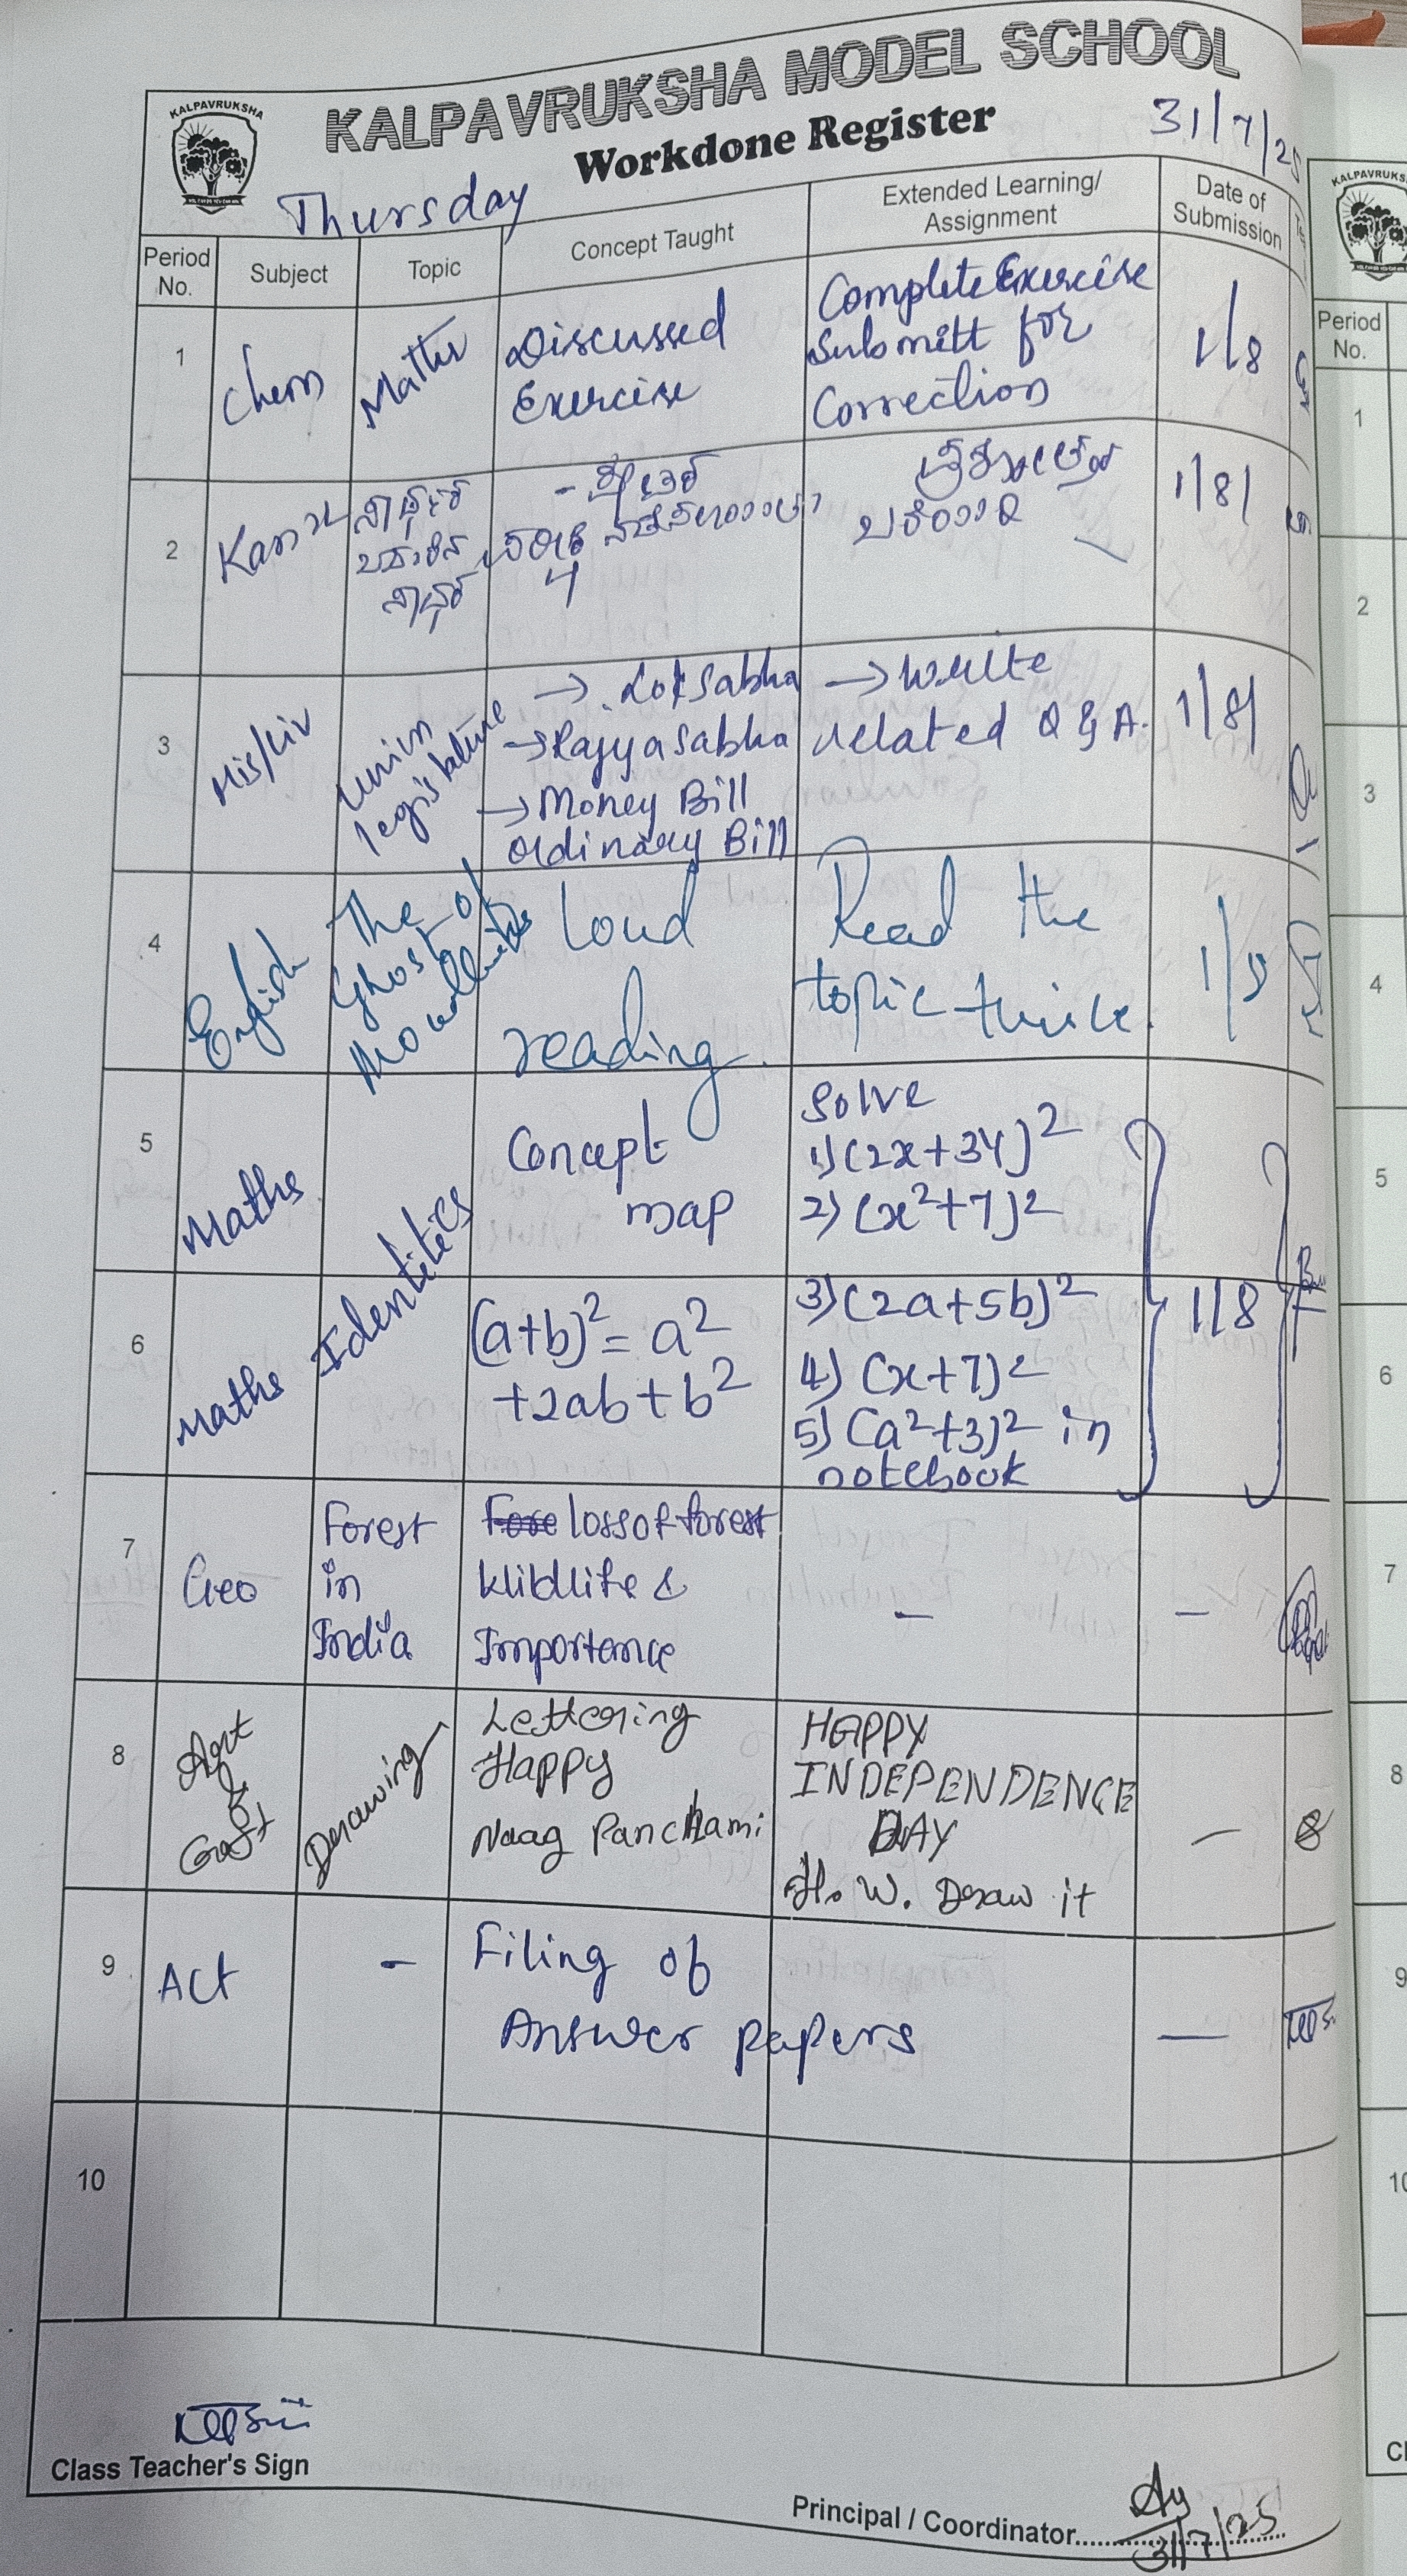 KALPAVRUKSHA
KALPAVRUKSHA MODEL SCHOOL
Workdone Register
31/7/25
Thursday
Period No.
Subject
Topic
Concept Taught
Extended Learning/
Assignment
Date of
Submission
1
Chem
Matter
Discussed
Exercise
Complete Exercise
Submitt for
Correction
1/8
2
Kan
4
1/8/
3
His/Civ
Union
legislature
→ Loksabha
→ Rajyasabha
→ Money Bill
ordinary Bill
→ write
related Q & A.
1/8/
4
English
The
Ghost of
Loud
reading.
Read the
topic twice.
1/8
5
Maths
Identities
Concept
map
Solve
1) (2x+3y)2
2) (x2+7)2
6
Maths
(a+b)2 = a2
+2ab+b2
3) (2a+5b)2
4) (x+7)2
5) (a2+3)2 in
notebook
1/8
7
Geo
Forest
in
India
loss of forest
&
Importance
-
-
8
Art
&
Craft
Drawing
Lettering
Happy
Naag Panchami
HAPPY
INDEPENDENCE
DAY
H.W. Draw it
-
9
Act
-
Filing of
Answer papers
-
10
Class Teacher's Sign
Principal / Coordinator
31/7/25
KALPAVRUKS
Period
No.
1
2
3
4
5
6
7
8
9
10